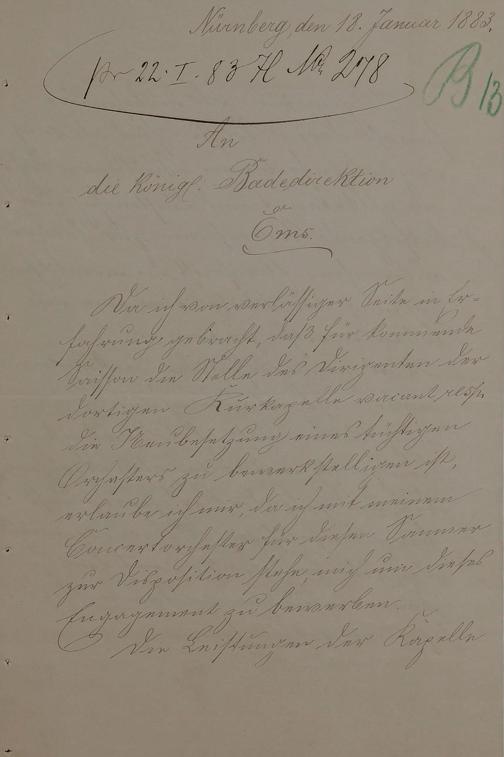 Nürnberg, den 18. Januar 1883.
pr 22. I. 83 H No. 278
B 13
An
die Königl. Badedirektion
Ems.
Da ich von verlässiger Seite in Er-
fahrung gebracht, daß für kommende
Saison die Stelle des Dirigenten der
dortigen Kurkapelle vacant resp.
die Neubesetzung eines tüchtigen
Orchesters zu bewerkstelligen ist,
erlaube ich mir, da ich mit meinem
Concertorchester für diesen Sommer
zur Disposition stehe, mich um dieses
Engagement zu bewerben.
Die Leistungen der Kapelle